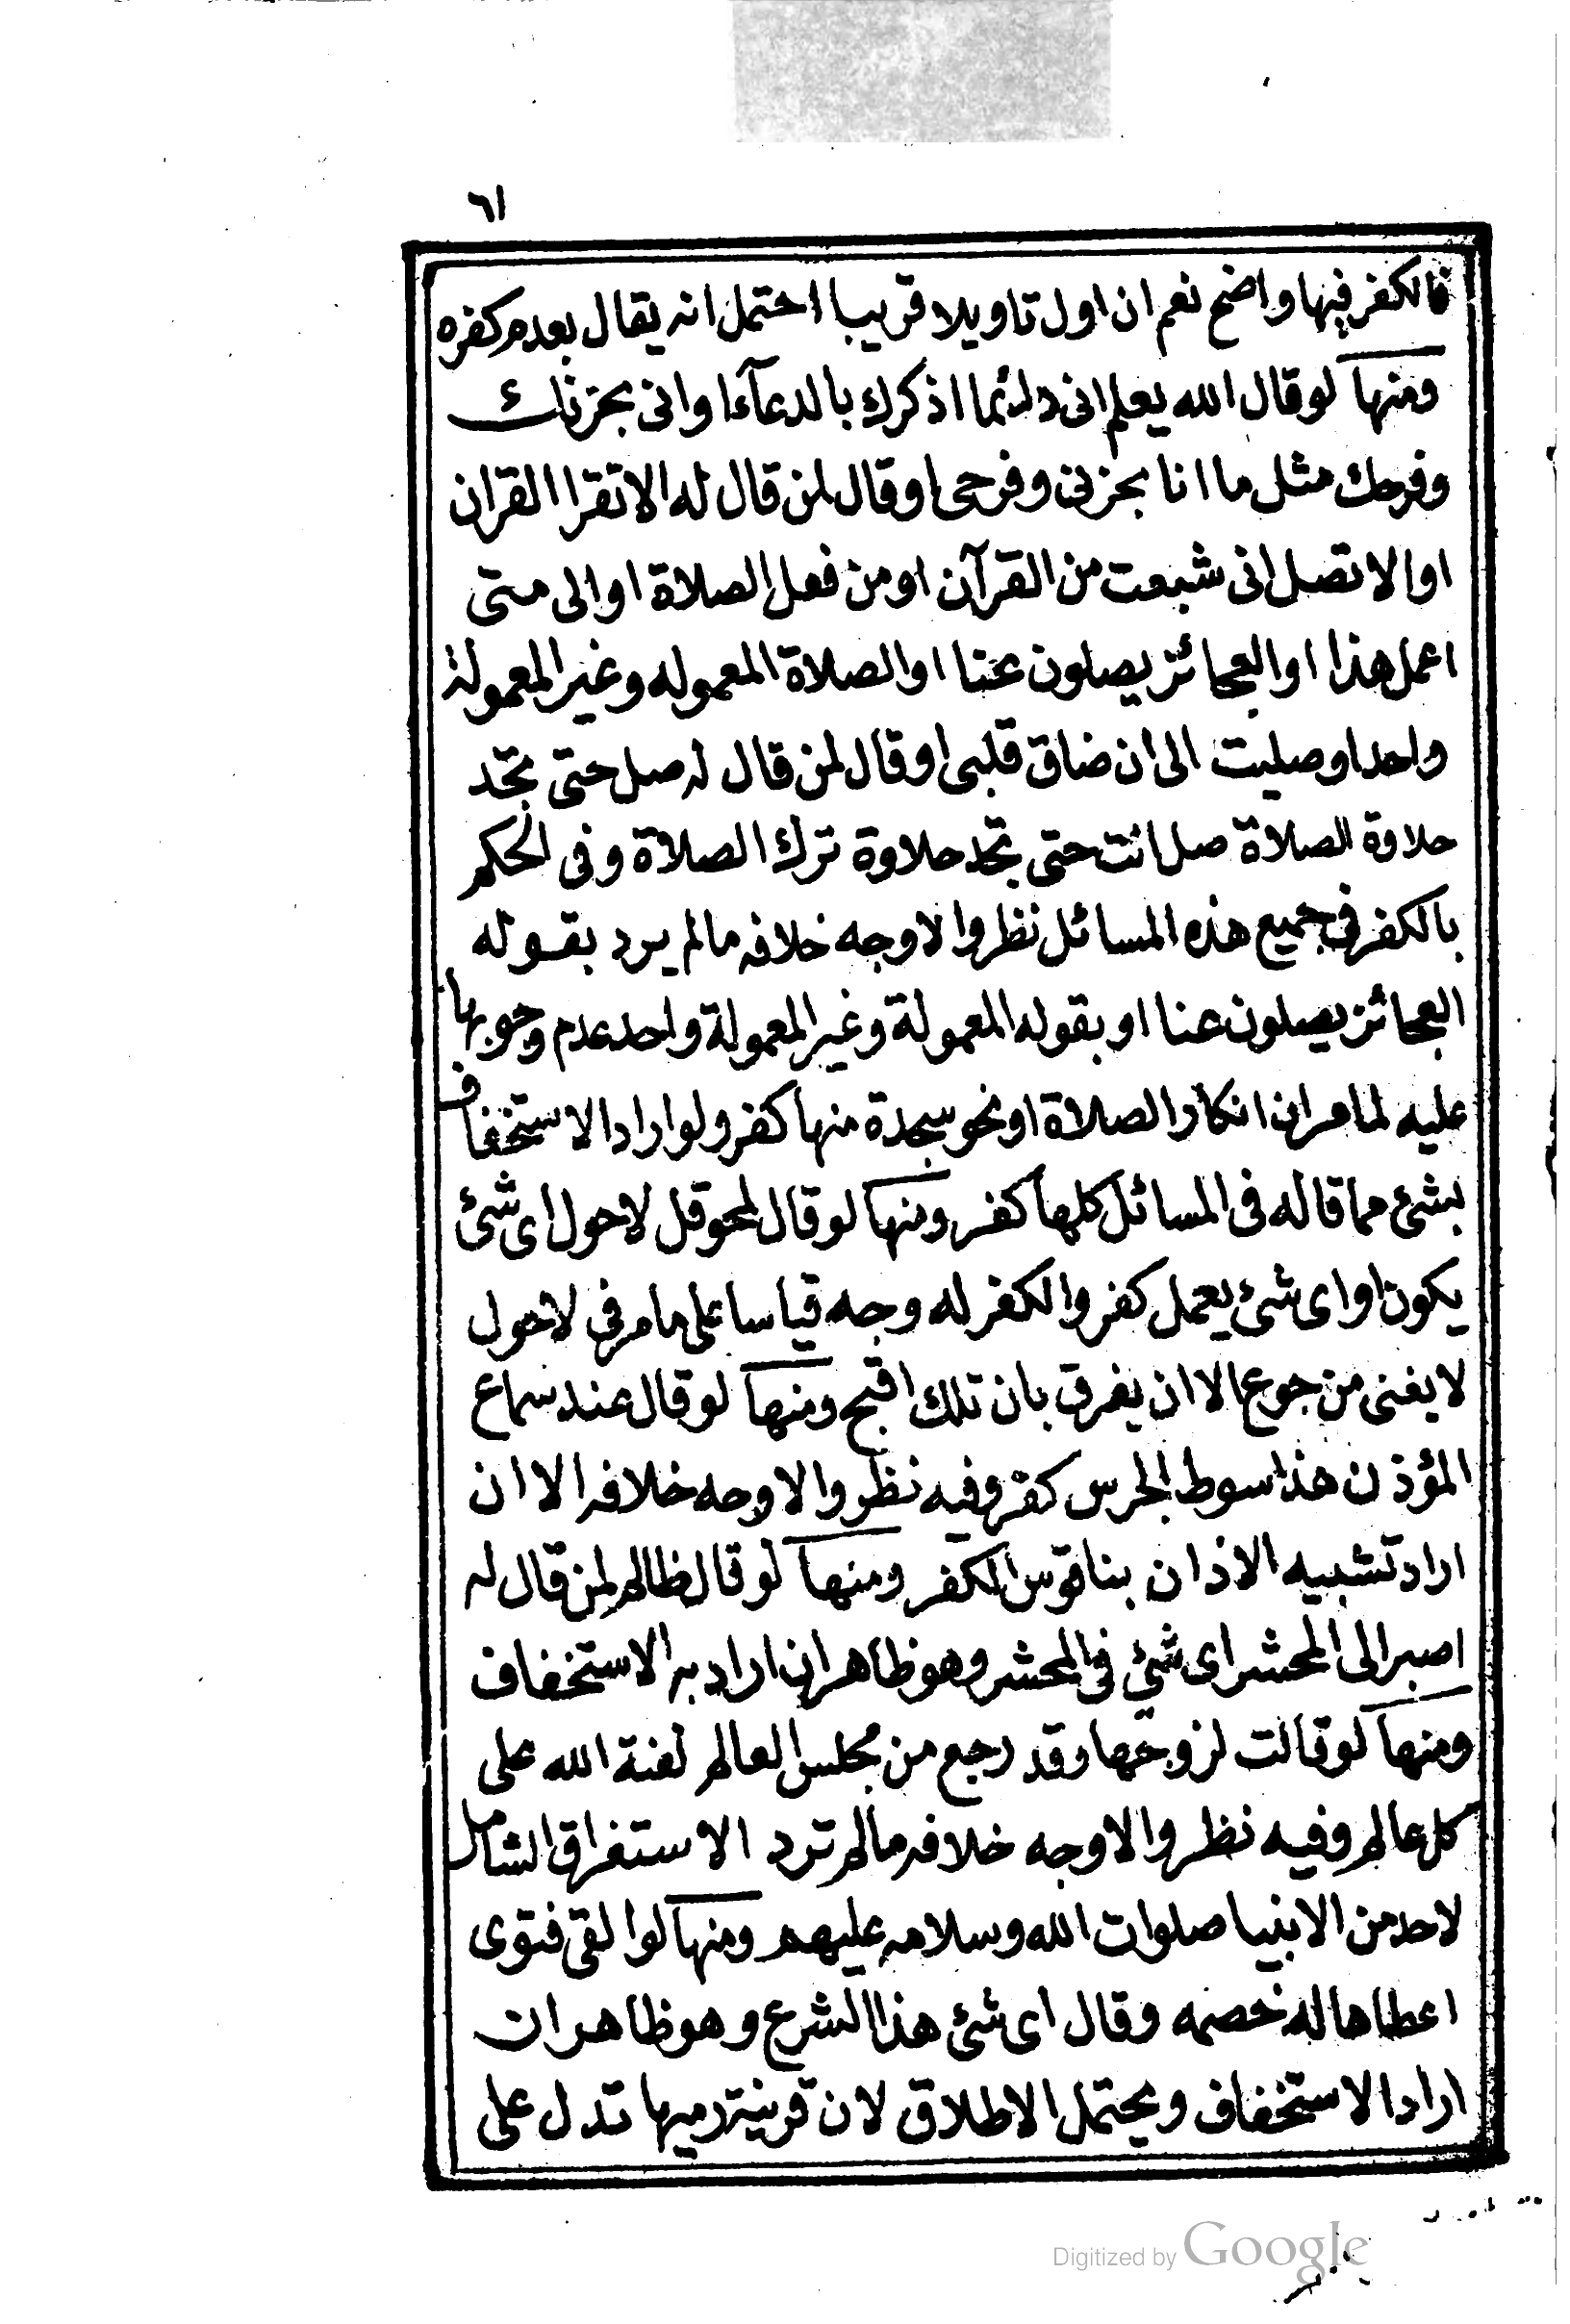 ٦١
فالكفر فيها واضح نعم ان اول تاويلا قريبا احتمل انه يقال بعدم كفره
ومنها لو قال الله يعلم انى دائما اذكرك بالدعآء او انى بحزنك
وفرحك مثل ما انا بحزنى وفرحى او قال لمن قال له الا تقرا القران
او الا تصل انى شبعت من القرآن او من فعل الصلاة او الى متى
اعمل هذا او العجائز يصلون عنا او الصلاة المعموله وغير المعمولة
واحد او صليت الى ان ضاق قلبى او قال لمن قال له صل حتى تجد
حلاوة الصلاة صل انت حتى تجد حلاوة ترك الصلاة وفى الحكم
بالكفر فى جميع هذه المسائل نظر والاوجه خلافه مالم يرد بقوله
العجائز يصلون عنا او بقوله المعمولة وغير المعمولة واحد عدم وجوبها
عليه لما مر ان انكار الصلاة او نحو سجدة منها كفر ولو اراد الاستخفاف
بشئ مما قاله فى المسائل كلها كفر ومنها لو قال لمحوقل لاحول اى شئ
يكون او اى شئ يعمل كفر والكفر له وجه قياسا على ما مر فى لاحول
لا يغنى من جوع الا ان يفرق بان تلك اقبح ومنها لو قال عند سماع
المؤذن هذا سوط الجرس كفر وفيه نظر والاوجه خلافه الا ان
اراد تشبيه الاذان بناقوس الكفر ومنها لو قال ظالم لمن قال له
اصبر الى المحشر اى شئ فى المحشر وهو ظاهر ان اراد به الاستخفاف
ومنها لو قالت لزوجها وقد رجع من مجلس العالم لعنة الله على
كل عالم وفيه نظر والاوجه خلافه مالم ترد الاستغراق الشامل
لاحد من الانبيا صلوات الله وسلامه عليهم ومنها لو القى فتوى
اعطاها له خصمه وقال اى شئ هذا الشرع وهو ظاهر ان
اراد الاستخفاف ويحتمل الاطلاق لان قرينة رميها تدل على
Digitized by Google